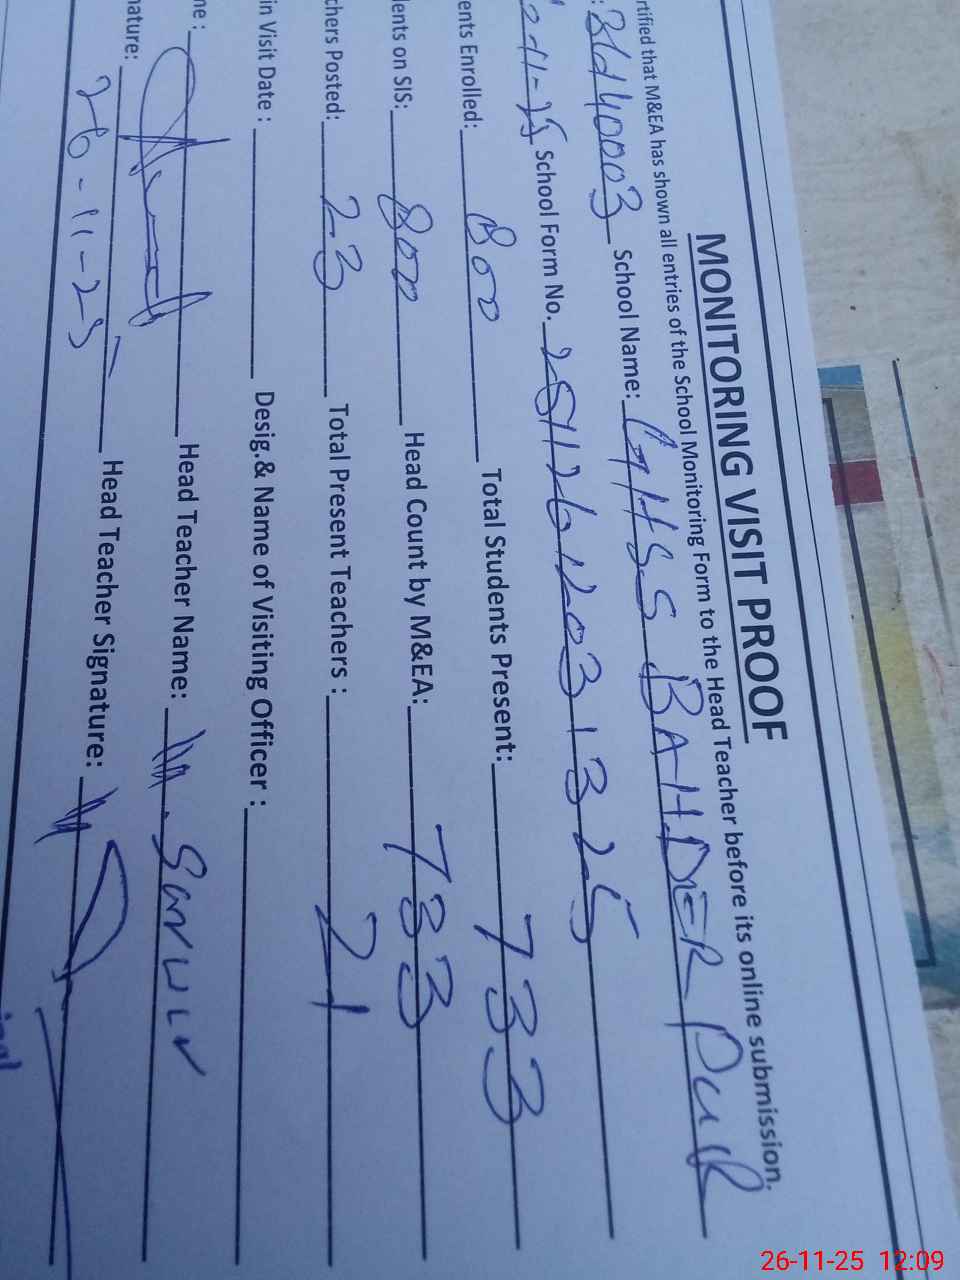 MONITORING VISIT PROOF
rtified that M&EA has shown all entries of the School Monitoring Form to the Head Teacher before its online submission.
School Name: GHSS BAHDER PUR
School Form No. 25112612031325
ents Enrolled: 800 Total Students Present: 733
dents on SIS: 800 Head Count by M&EA: 733
chers Posted: 23 Total Present Teachers : 21
in Visit Date : Desig.& Name of Visiting Officer :
ne : Head Teacher Name:
nature: Head Teacher Signature:
26-11-25
26-11-25 12:09